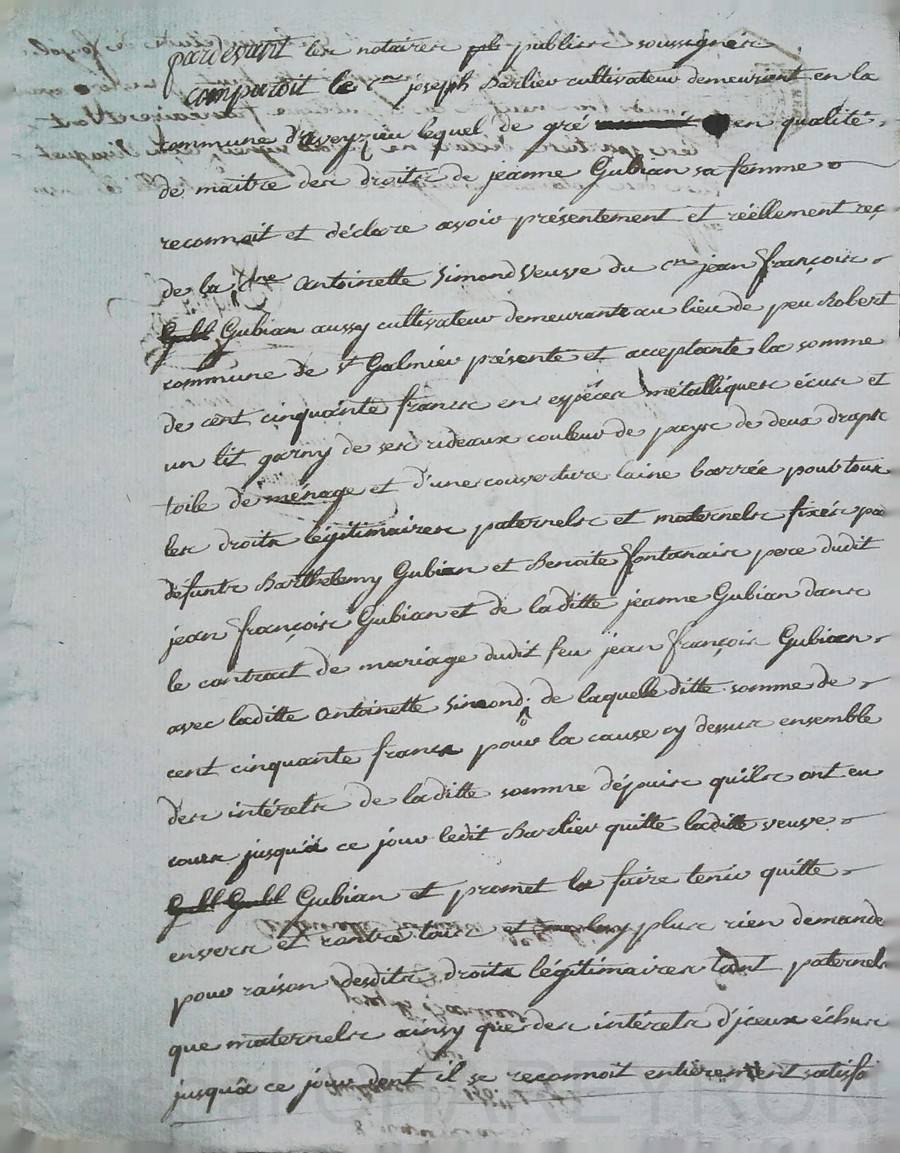 pardevant les notaires publics soussignés
comparoit le cn joseph Barlier cultivateur demeurant en la
commune d'aveyzieu lequel de gré en qualité
de maitre des droits de jeanne Gubian sa femme
reconnoit et déclare avoir présentement et réellement reç
de la cne Antoinette Simond veuve du cn jean françois
Gubl Gubian aussy cultivateur demeurante au lieu de peu Robert
commune de st Galmier présente et acceptante la somme
de cent cinquante francs en espéces métalliques écus et
un lit garny de ses rideaux couleur de payse de deux draps
toile de ménage et d'une couverture laine barrée pour tous
les droits légitimaires paternels et maternels fixés par
défunts Barthelemy Gubian et Benoite fontanais pere dudit
jean françois Gubian et de laditte jeanne Gubian dans
le contract de mariage dudit feu jean françois Gubian
avec laditte antoinette Simond; de laquelle ditte somme de
cent cinquante francs pour la cause cy dessus ensemble
des intérets de laditte somme déjouis quils ont eu
cours jusqu'à ce jour ledit Barlier quitte laditte veuve
Gubl Gubl Gubian et promet la faire tenir quitte
envers et contre tous et plus rien demande
pour raison desdits droits légitimaires tant paternels
que maternels ainsy que des intérets d'jceux échus
jusqu'à ce jour dont il se reconnoit entièrement satisfa